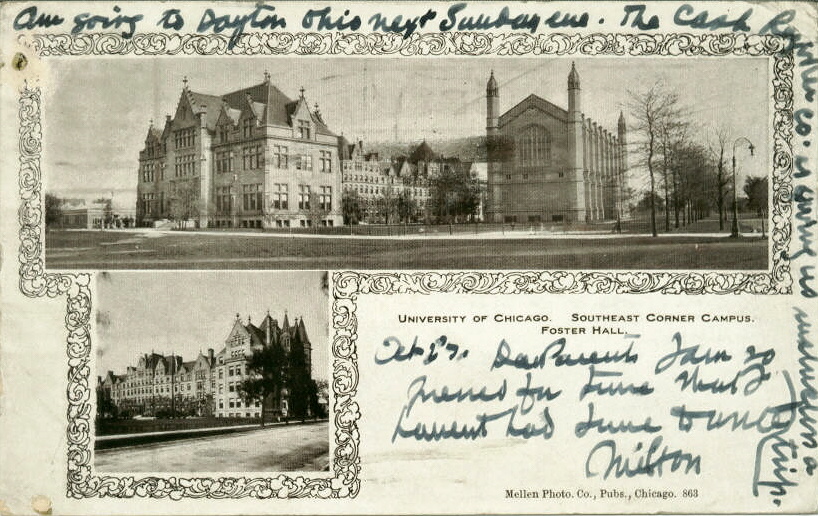 Am going to Dayton Ohio next Sunday eve. The Cash
Register Co. is giving us a
trip.
UNIVERSITY OF CHICAGO. SOUTHEAST CORNER CAMPUS.
FOSTER HALL.
Dear Parents I am so
pressed for time that I
havent had time to write
Milton
Mellen Photo. Co., Pubs., Chicago. 863